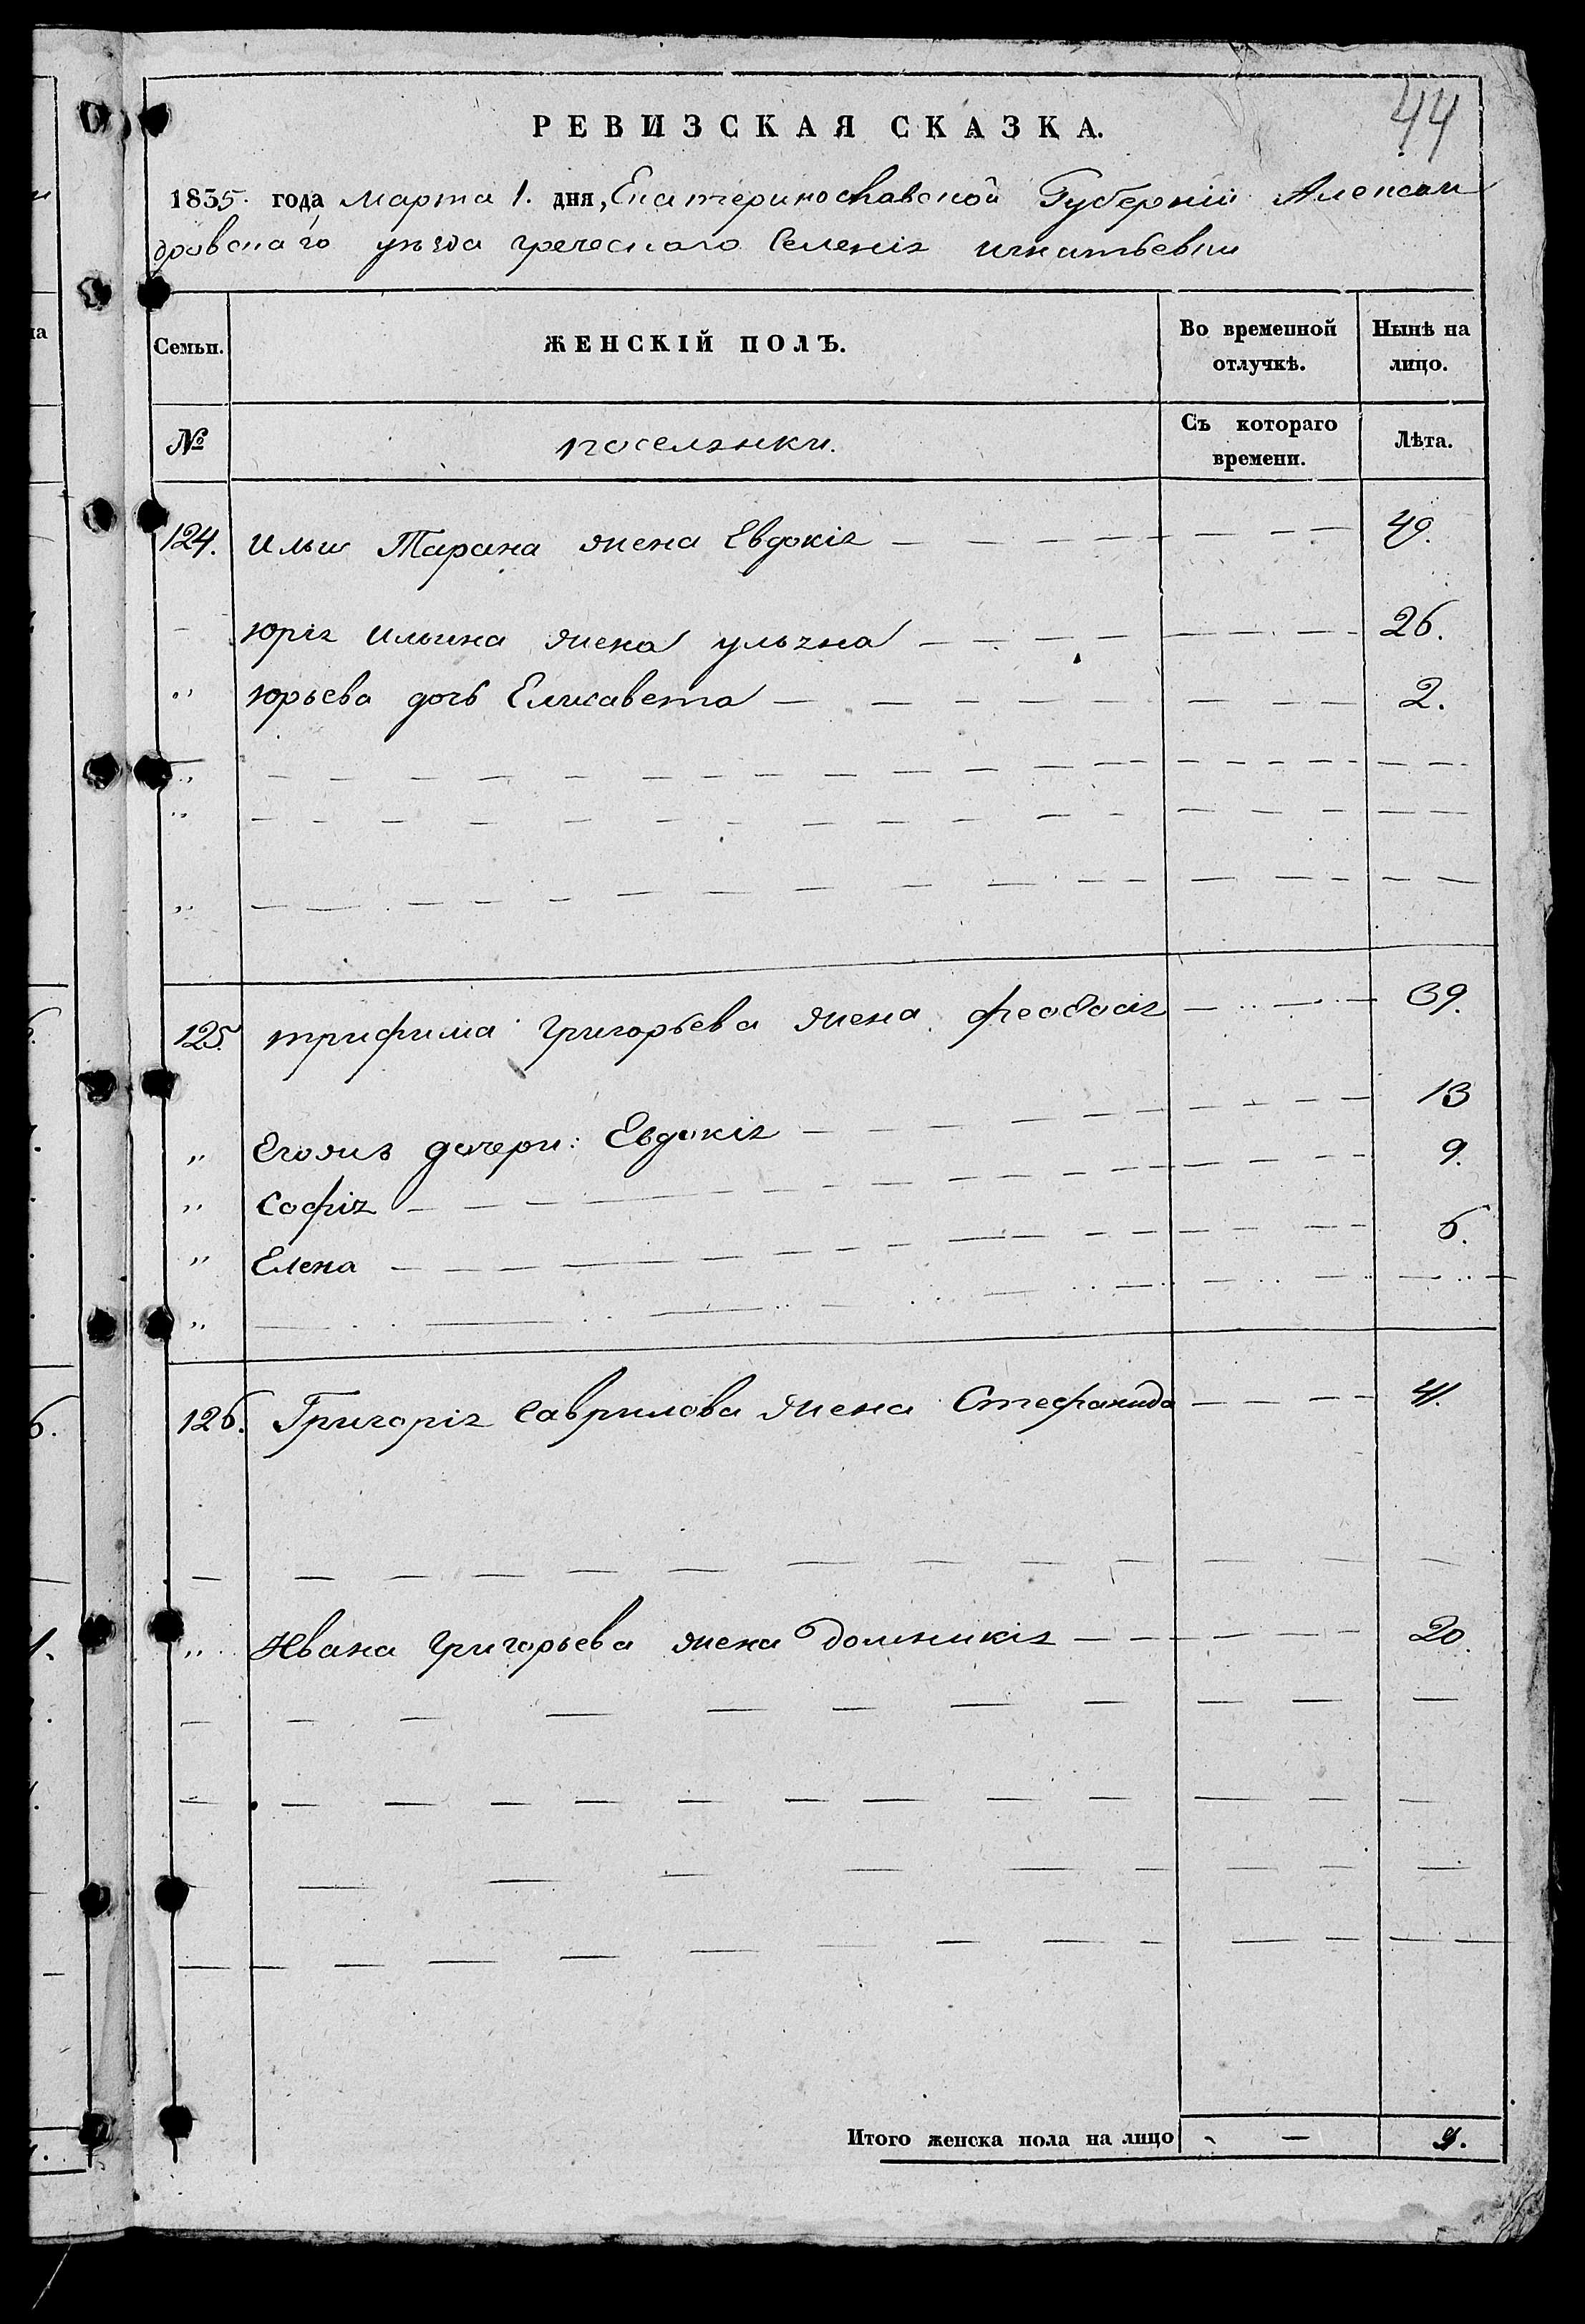 44
РЕВИЗСКАЯ СКАЗКА.
1835. года марта 1. дня, Екатеринославской Губерніи Алексан
дровскаго уѣзда греческаго Селенія игнатьевки
Семьи. ЖЕНСКІЙ ПОЛЪ. Во временной отлучкѣ. Нынѣ на лицо.
№ поселянки. Съ котораго времени. Лѣта.
124. Ильи Тарана жена Евдокія — — — — — — — 49.
— юрія Ильина жена ульяна — — — — — — — 26.
" юрьева дочь Елисавета — — — — — — — — 2.
" — — — — — — — — — —
" — — — — — — — — — —
" — — — — — — — — — —
125. трифима григорьева жена феодосія — — — 39.
" Егожъ дочери: Евдокія — — — — — — — 13
" Софія — — — — — — — — — — 9.
" Елена — — — — — — — — — — 6.
" — — — — — — — — — —
126. Григорія Гаврилова жена Стефанида — — — — 41.
— — — — — — — — — — —
" Ивана григорьева жена домникія — — — — — — 20.
— — — — — — — — — — —
— — — — — — — — — — —
— — — — — — — — — —
— — — — — — — — — — —
Итого женска пола на лицо - — 9.